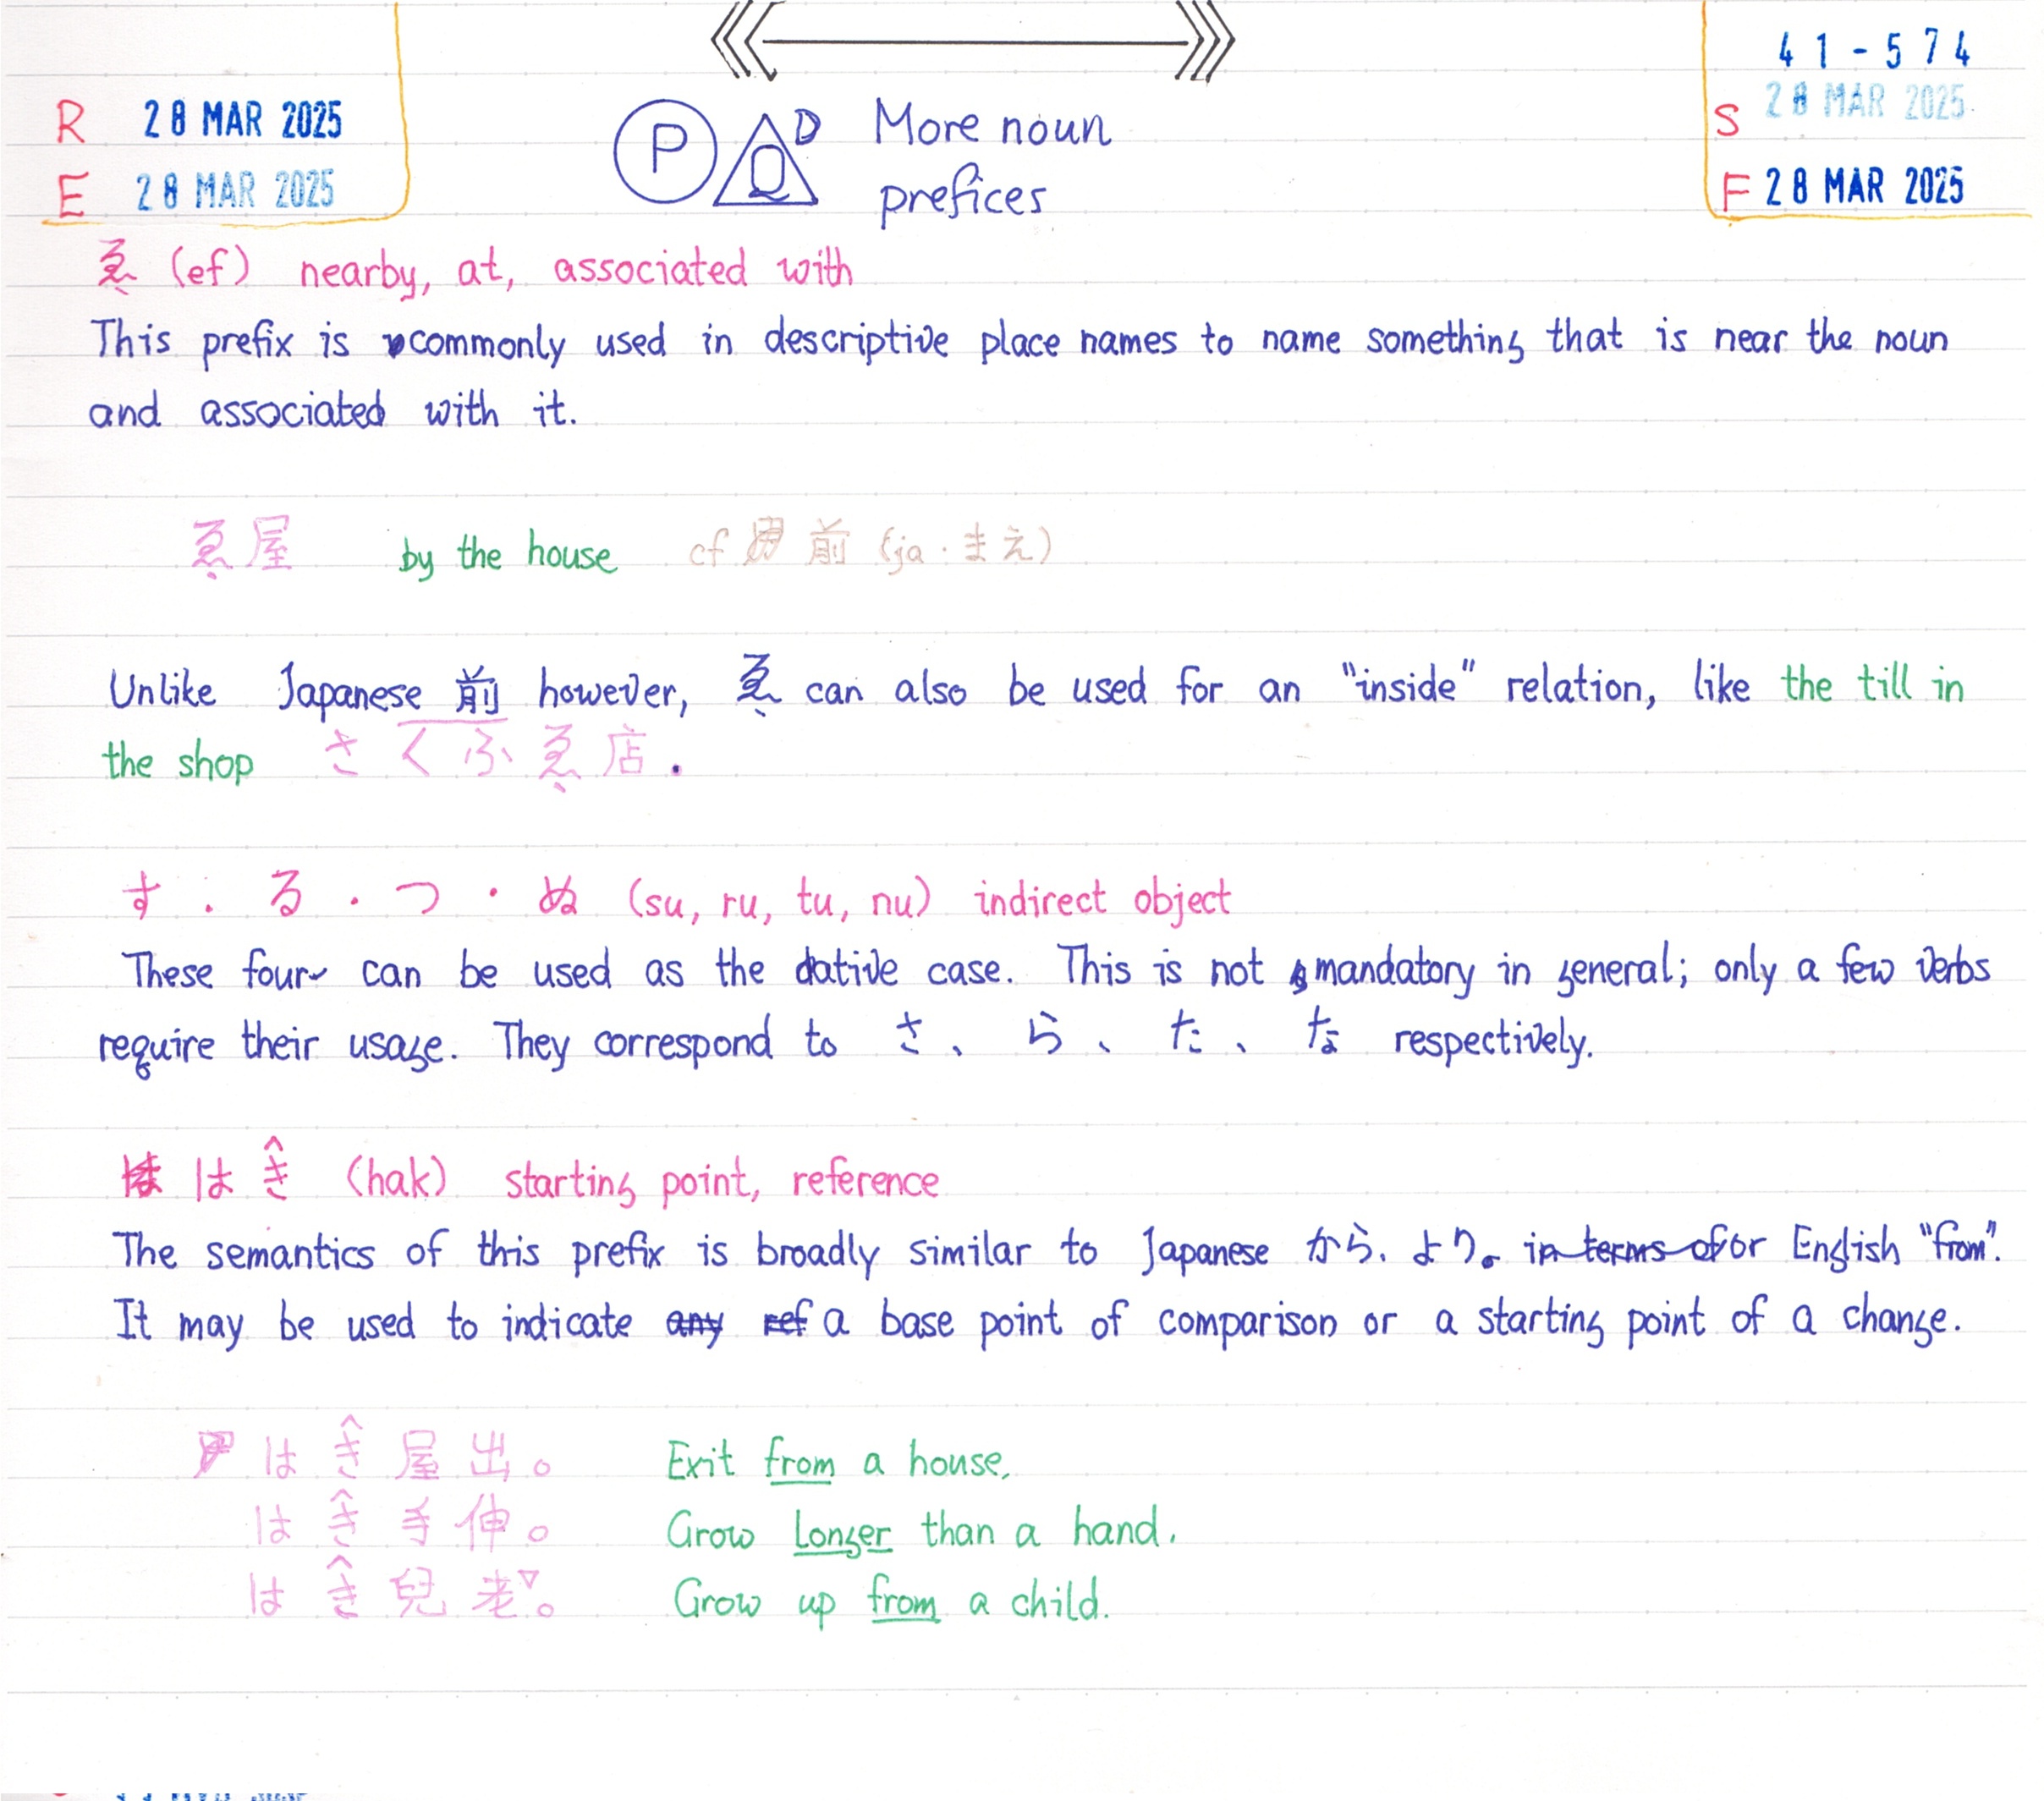 41-574
R 28 MAR 2025
E 28 MAR 2025
P Q D More noun
prefices
S 28 MAR 2025
F 28 MAR 2025
ゑ (ef) nearby, at, associated with
This prefix is commonly used in descriptive place names to name something that is near the noun
and associated with it.
ゑ屋 by the house cf 前 (ja・まえ)
Unlike Japanese 前 however, ゑ can also be used for an "inside" relation, like the till in
the shop さくふゑ店.
す・る・つ・ぬ (su, ru, tu, nu) indirect object
These four can be used as the dative case. This is not mandatory in general; only a few verbs
require their usage. They correspond to さ、ら、た、な respectively.
はき̂ (hak) starting point, reference
The semantics of this prefix is broadly similar to Japanese から、より。 in terms of or English "from".
It may be used to indicate any ref a base point of comparison or a starting point of a change.
はき̂屋出。 Exit from a house.
はき̂手伸。 Grow longer than a hand.
はき̂兒老▽。 Grow up from a child.